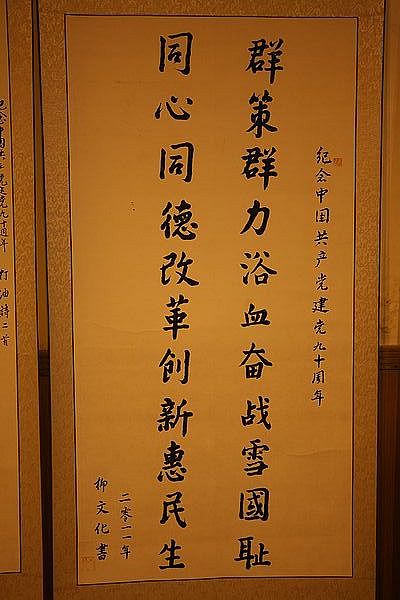 纪念中国共产党建党九十周年
群策群力浴血奋战雪國耻
同心同德改革创新惠民生
二零一一年
柳文化書
纪念中国共产党建党九十周年 打油詩二首